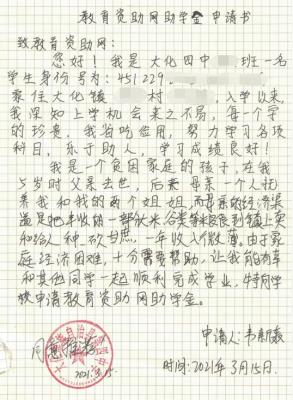 教育资助网助学金申请书
致教育资助网:
您好！我是大化四中 班一名
学生身份号为:451229
家住大化镇 村 ,入学以来,
我深知上学机会来之不易,每一个字
的珍贵。我省吃俭用,努力学习各项
科目,乐于助人,学习成绩良好!
我是一个贫困家庭的孩子,在我
5岁时父亲去世,后来母亲一个人抚
养我和我的两个姐姐,而母亲的经济渠
道是把丰收的一部分 谷类等粮食到镇上卖
和给人种、砍甘蔗 一年收入微薄,由于家
庭经济困难,十分需要帮助,让我能够
和其他同学一起顺利完成学业,特向学
校申请教育资助网助学金。
同意推荐
2021.3.15
申请人:韦
时间:2021年3月15日.